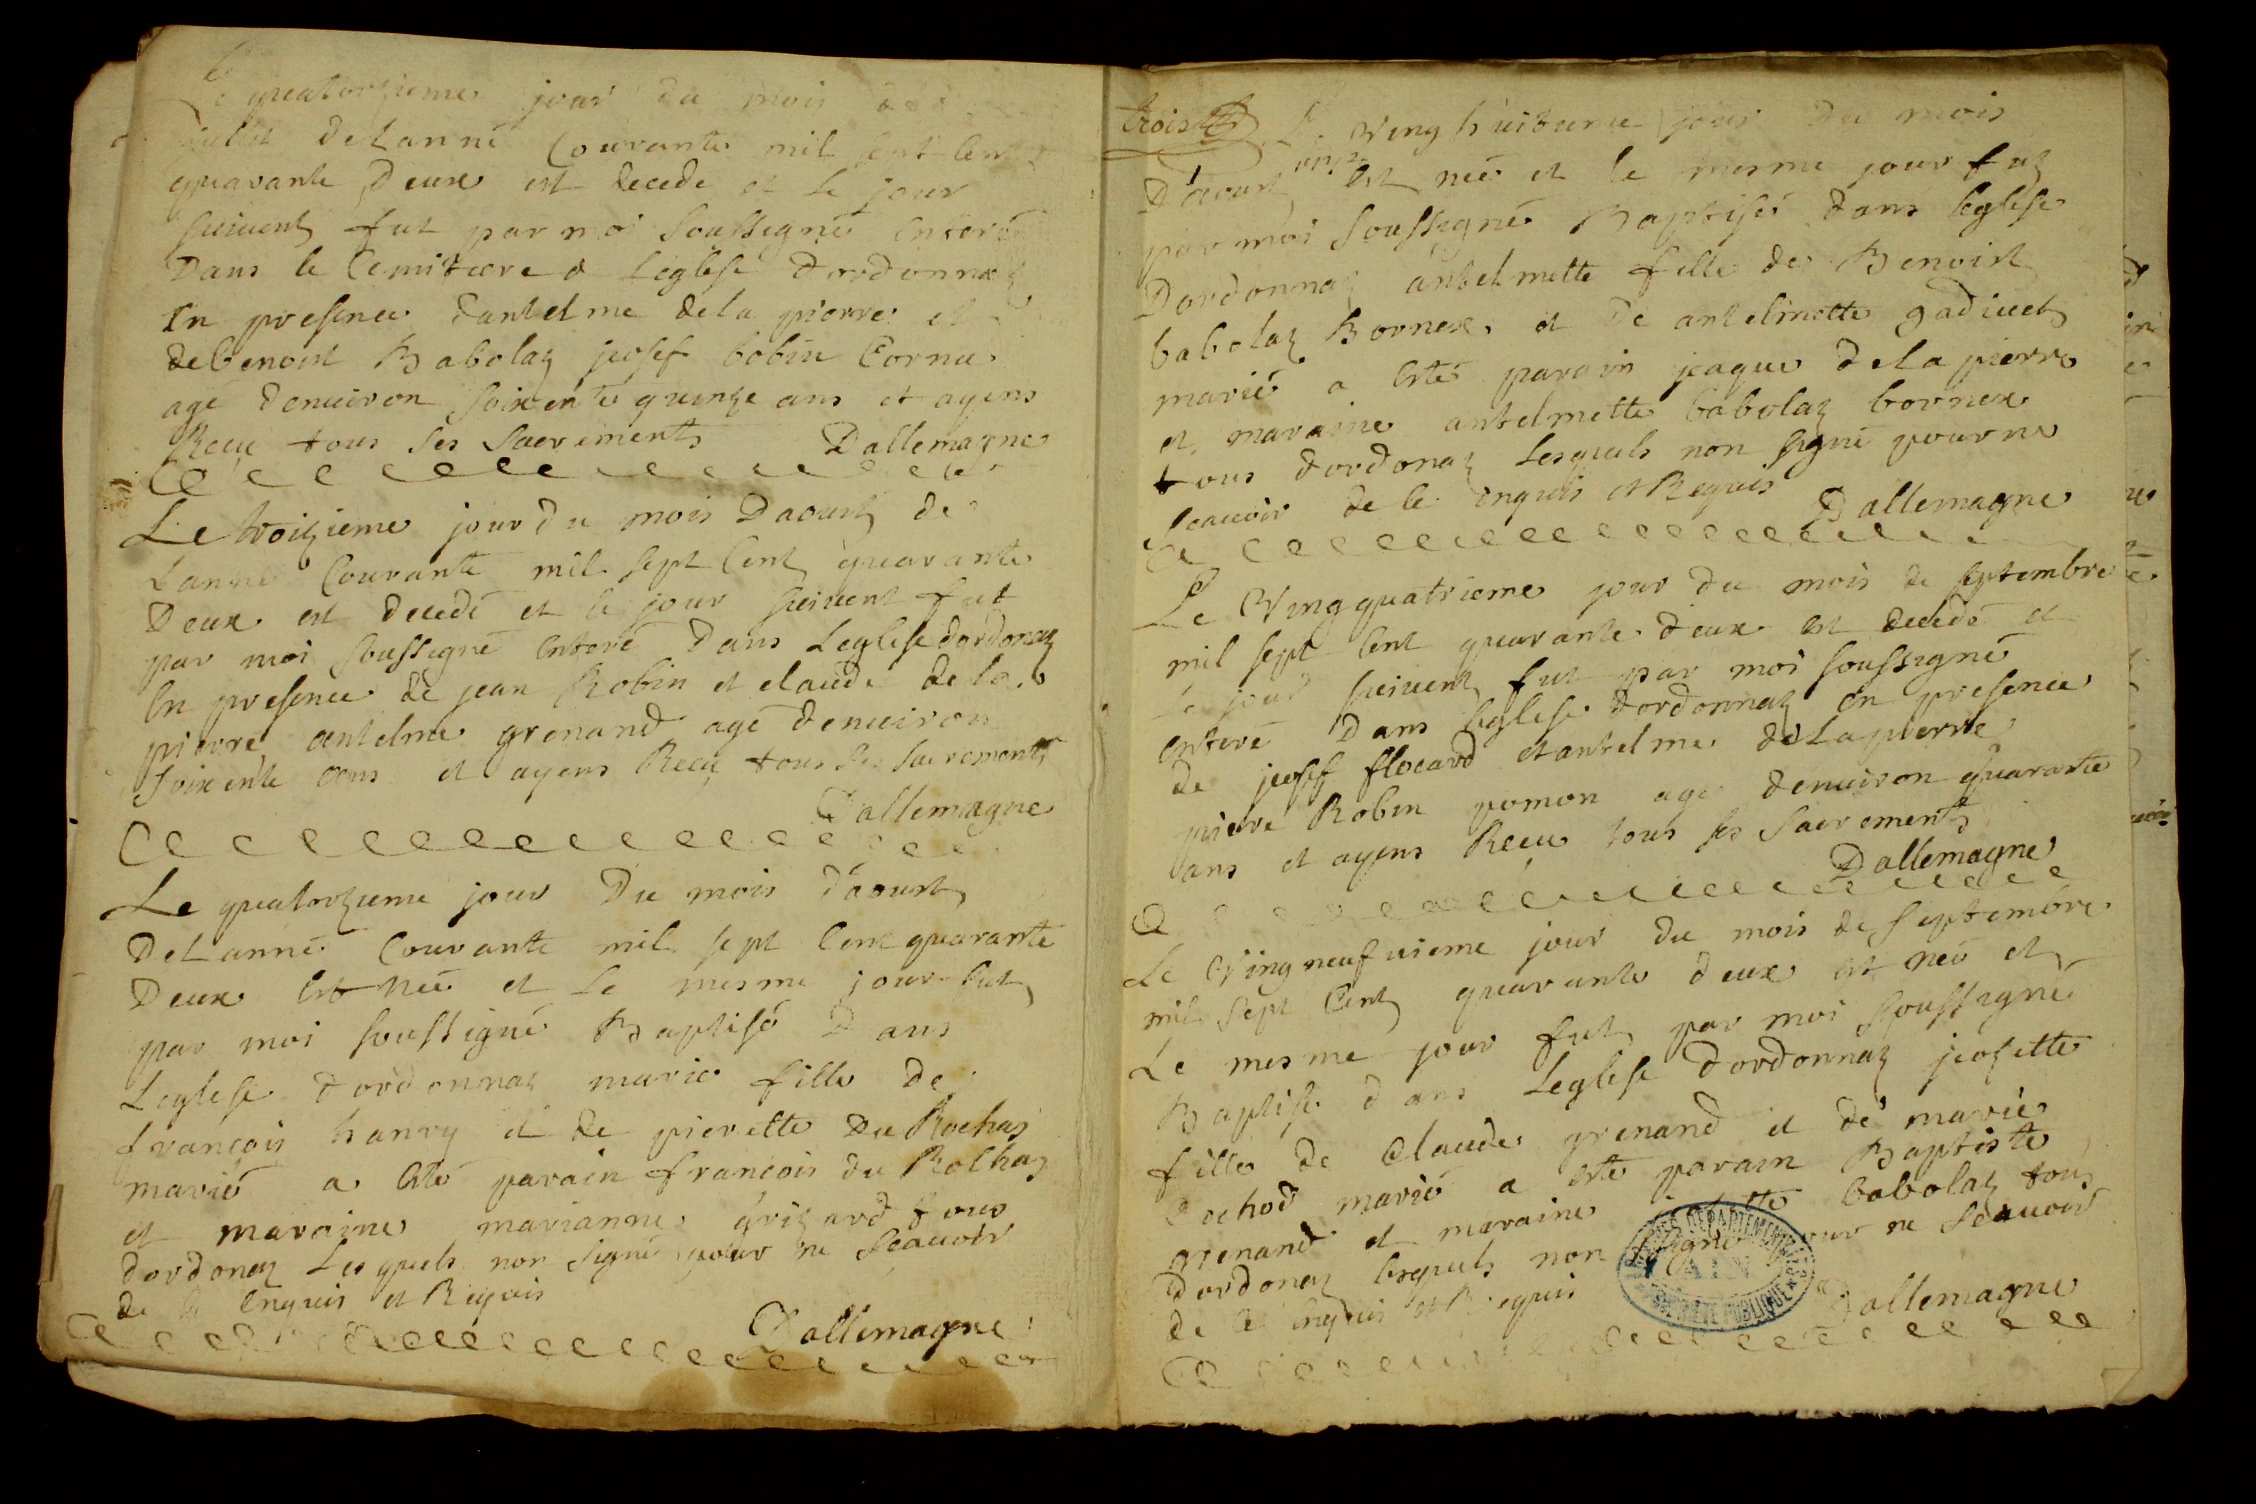 Le quatorzieme jour du mois de
Juliet de Lanné Courante mil sept Cent
quarante Deux est decede et le jour
suivent fut par moi soussigné Enteré
Dans le Cemitiere d Léglise dordonnaz
En presence dantelme dela pierre et
de benoist Babolaz josef bobin Cornu
agé denuiron soixente quinze ans et ayens
Receu tous ses sacrements Dallemagne
Le troizieme jour du mois Daoust de
Lanné Courante mil sept Cent quarante
Deux est decedé et le jour suivent fut
par moi soussigné Enteré Dans Leglise dordonaz
En presence de jean Robin et claude dela
pierre antelme grenand agé denuiron
soixente ans et ayens Receu tous ses sacrements
Dallemagne
Le quatorzieme jour Du mois d'aoust
De Lanné Courante mil sept Cent quarante
Deux est née et Le mesme jour fut
par moi soussigné Baptisé Dans
Leglise dordonnaz marie fille de
françois hanry et de pierette Du Rochas
marié a esté parain françois du Rolhaz
et maraine marianne grizard tous
dordonaz Lesquels non signé pour ne Scauoir
de le Enquis et Requis
Dallemagne
trois Le Ving huitieme jour Du mois
D'aoust est née et le mesme jour fut
par moi soussigné Baptisé dans leglise
Dordonnaz antelmette fille de Benoist
babolaz Bornex et De antelmette gadiuet
marié a esté parain jeaque dela pierre
et maraine antelmette babolaz bornex
tous dordonaz Lesquels non signé pour ne
Scauoir de le enquis et Requis Dallemagne
Le Ving quatrieme jour du mois de septembre
mil sept Cent quarante deux est decedé et
le jour suivent fut par moi soussigné
enteré Dans leglise dordonnaz En presence
de josef flocard et antelme de Lapierre
pierre Robin pomon agé denuiron quarante
ans et ayens Receu tous ses sacrements
Dallemagne
Le Ving neufuieme jour du mois de septembre
mil sept Cent quarante deux est née et
Le mesme jour fut par moi soussigné
Baptisé dans Leglise dordonnaz jeozette
fille de Claude grenand et de marie
Dochod marié a esté parain Baptiste
grenand et maraine babolaz tous
Dordonaz lesquels non signé pour ne Scauoir
de le enquis et Requis Dallemagne
ARCHIVES DEPARTEMENTALES
AIN